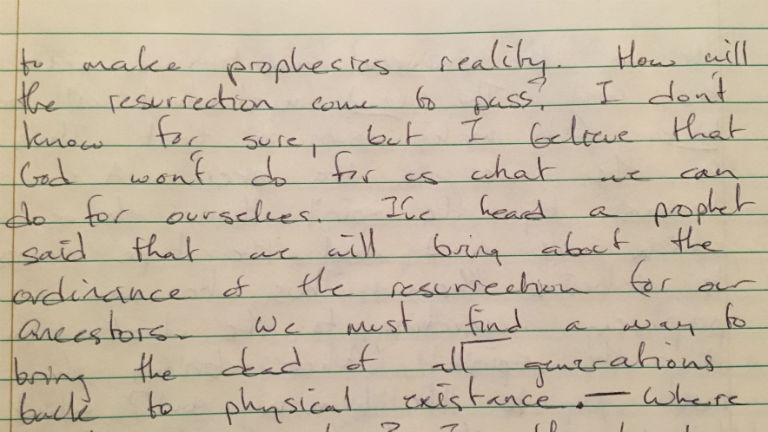 to make prophesies reality. How will
the resurrection come to pass? I don't
know for sure, but I believe that
God won't do for us what we can
do for ourselves. I've heard a prophet
said that we will bring about the
ordinance of the resurrection for our
ancestors. We must find a way to
bring the dead of all generations
back to physical existance. — Where